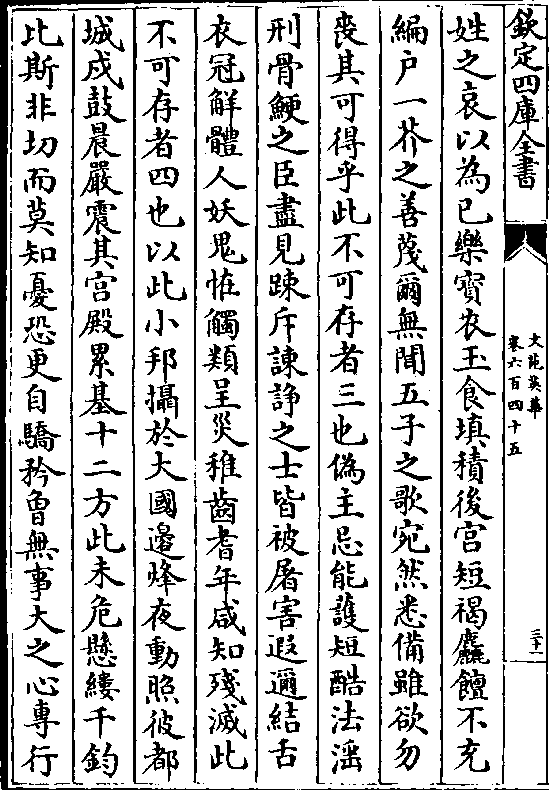 欽定四庫全書
文苑英華
卷六百四十五
三十一
姓之哀以為已樂寳衣玉食填積後宫短褐麤饘不充
編户一芥之善蔑爾無聞五子之歌宛然悉備雖欲勿
喪其可得乎此不可存者三也偽主忌能護短酷法滛
刑骨鯁之臣盡見踈斥諫諍之士皆被屠害遐邇結舌
衣冠解體人妖鬼怪觸類呈災稚齒耆年咸知殘滅此
不可存者四也以此小邦攝於大國邉烽夜動照彼都
城戍鼓晨嚴震其宫殿累基十二方此未危懸縷千鈞
比斯非切而莫知憂恐更自驕矜曾無事大之心專行